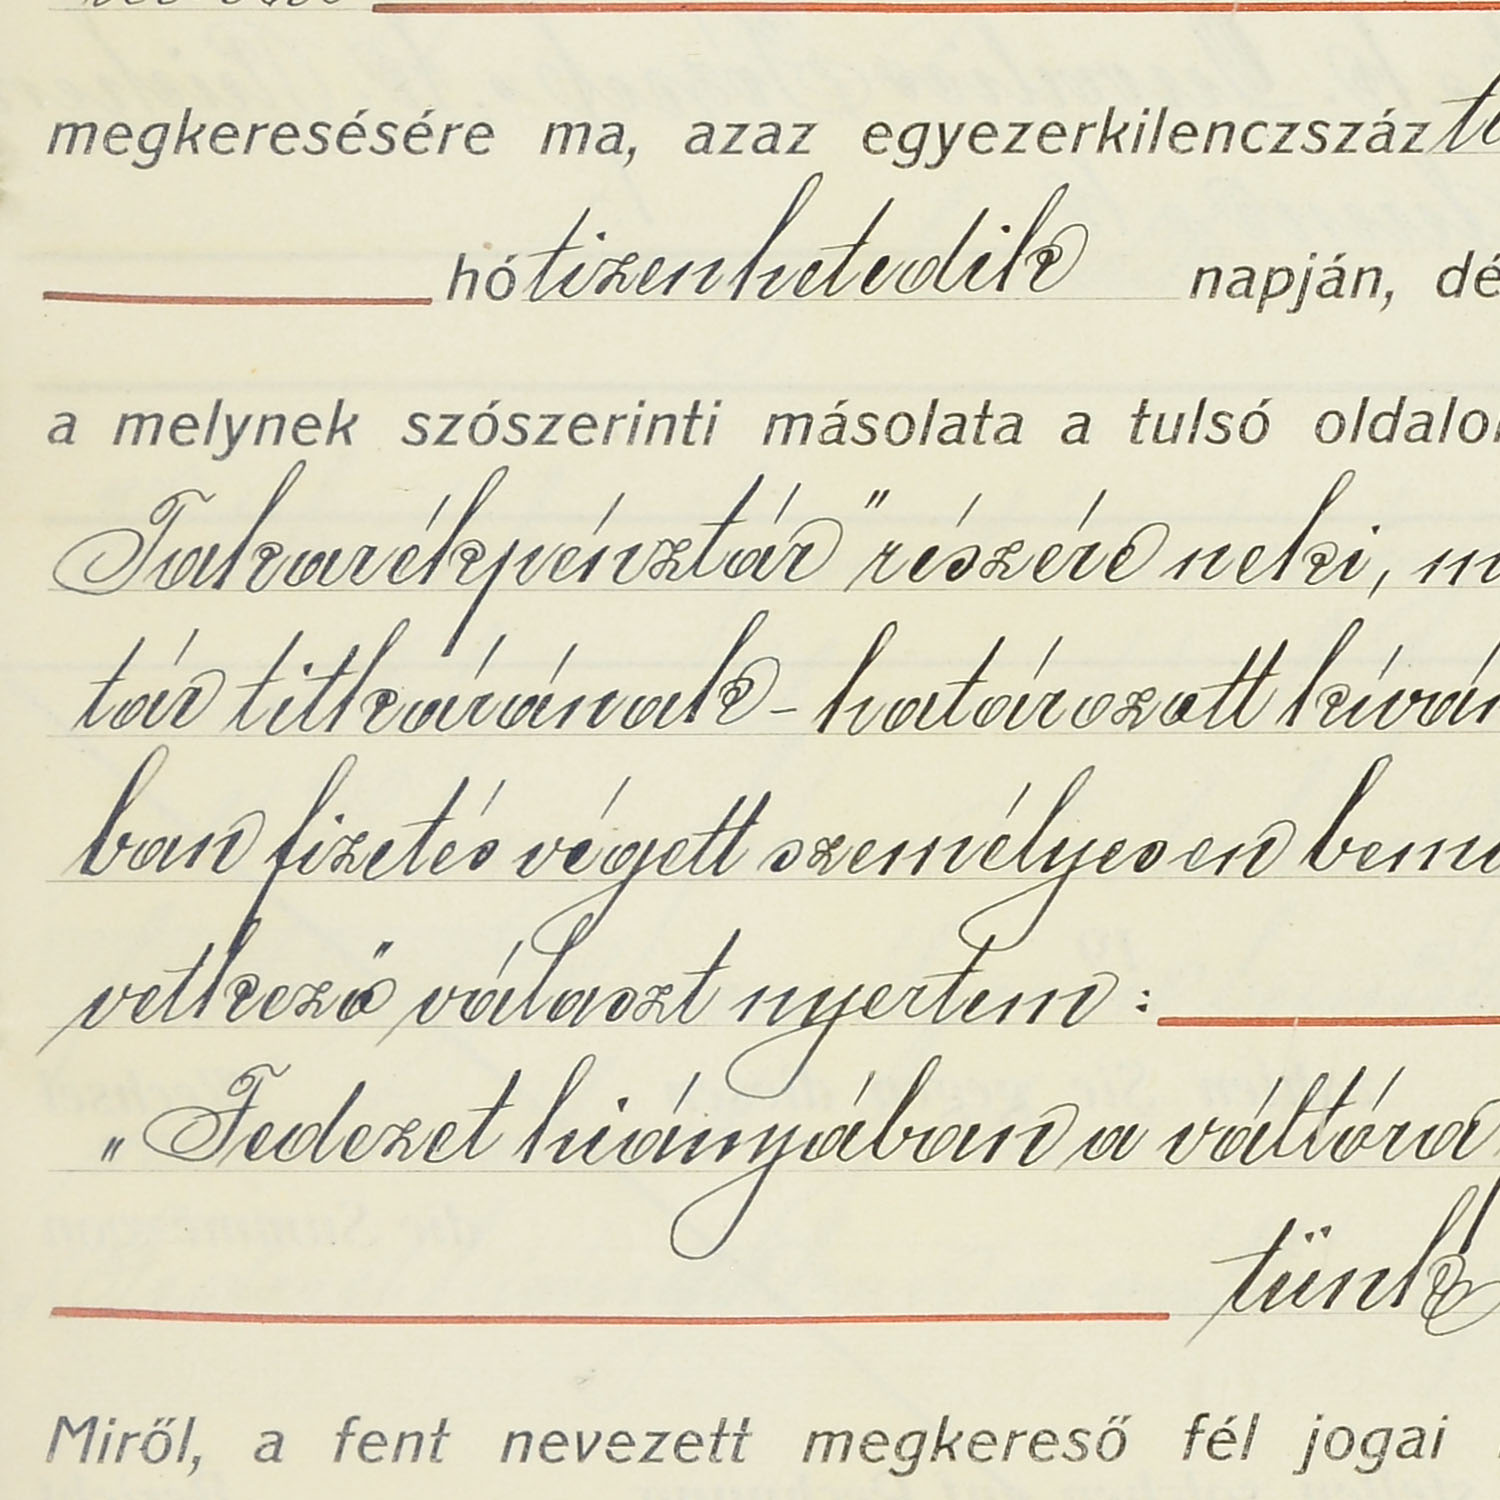 megkeresésére ma, azaz egyezerkilenczszáz
hó tizenhetedik napján, dé
a melynek szószerinti másolata a tulsó oldalon
Takarékpénztár" részére neki, m
tár titkárának - határozott kíván
ban fizetés végett személyesen bemu
vetkező választ nyertem :
„Fedezet hiányában a váltóra
tünk
Miről, a fent nevezett megkereső fél jogai